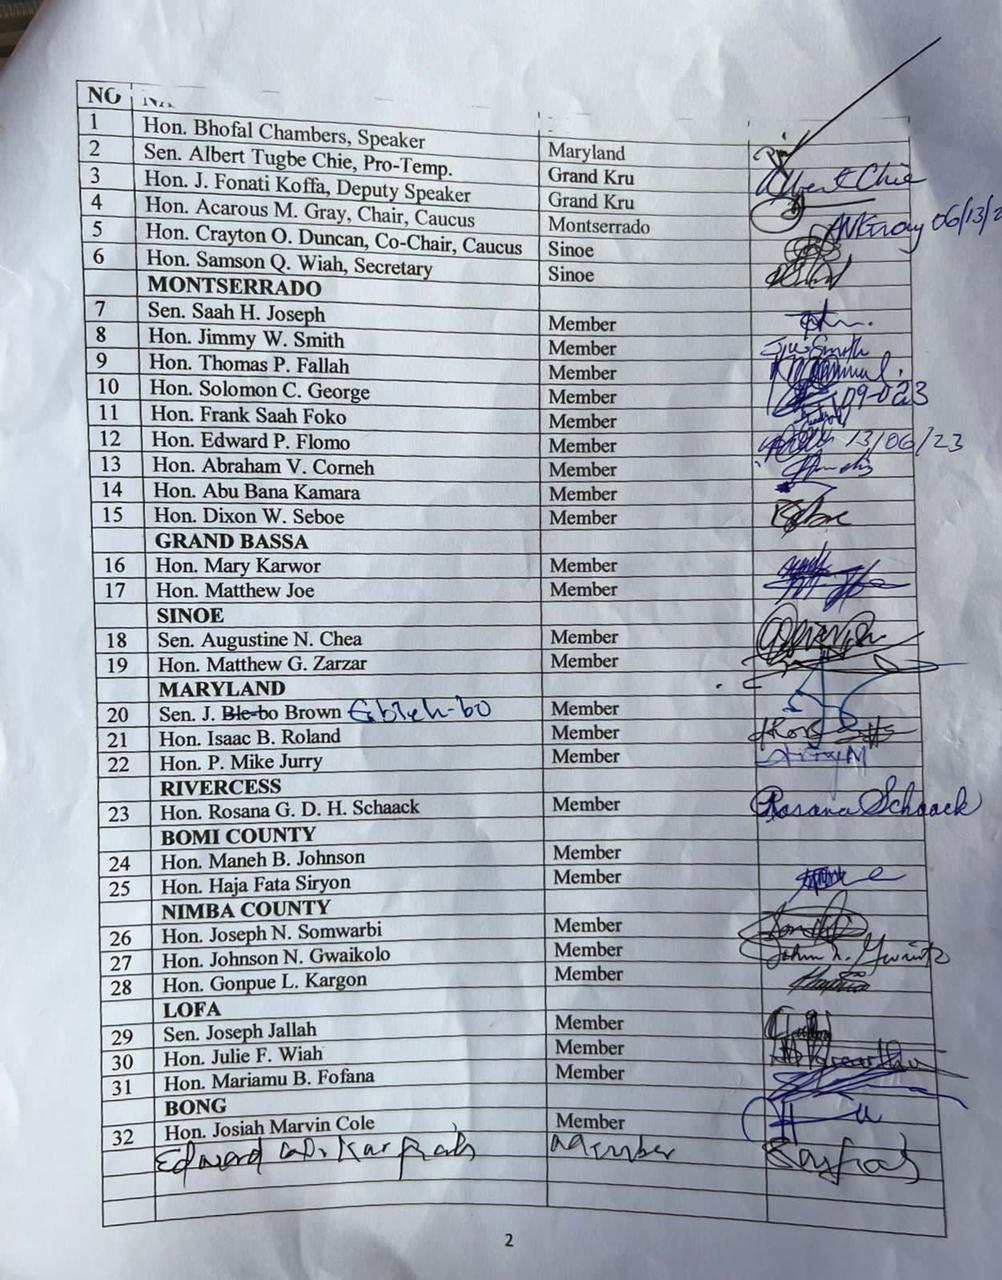 NO
1 Hon. Bhofal Chambers, Speaker Maryland
2 Sen. Albert Tugbe Chie, Pro-Temp. Grand Kru Albert Chie
3 Hon. J. Fonati Koffa, Deputy Speaker Grand Kru
4 Hon. Acarous M. Gray, Chair, Caucus Montserrado 06/13/2
5 Hon. Crayton O. Duncan, Co-Chair, Caucus Sinoe
6 Hon. Samson Q. Wiah, Secretary Sinoe
MONTSERRADO
7 Sen. Saah H. Joseph Member
8 Hon. Jimmy W. Smith Member
9 Hon. Thomas P. Fallah Member
10 Hon. Solomon C. George Member
11 Hon. Frank Saah Foko Member
12 Hon. Edward P. Flomo Member 13/06/23
13 Hon. Abraham V. Corneh Member
14 Hon. Abu Bana Kamara Member
15 Hon. Dixon W. Seboe Member
GRAND BASSA
16 Hon. Mary Karwor Member
17 Hon. Matthew Joe Member
SINOE
18 Sen. Augustine N. Chea Member
19 Hon. Matthew G. Zarzar Member
MARYLAND
20 Sen. J. Ble-bo Brown Gbleh-bo Member
21 Hon. Isaac B. Roland Member
22 Hon. P. Mike Jurry Member
RIVERCESS
23 Hon. Rosana G. D. H. Schaack Member Rosana Schaack
BOMI COUNTY
24 Hon. Maneh B. Johnson Member
25 Hon. Haja Fata Siryon Member
NIMBA COUNTY
26 Hon. Joseph N. Somwarbi Member
27 Hon. Johnson N. Gwaikolo Member
28 Hon. Gonpue L. Kargon Member
LOFA
29 Sen. Joseph Jallah Member
30 Hon. Julie F. Wiah Member
31 Hon. Mariamu B. Fofana Member
BONG
32 Hon. Josiah Marvin Cole Member
Edward W. Karfiah Member
2